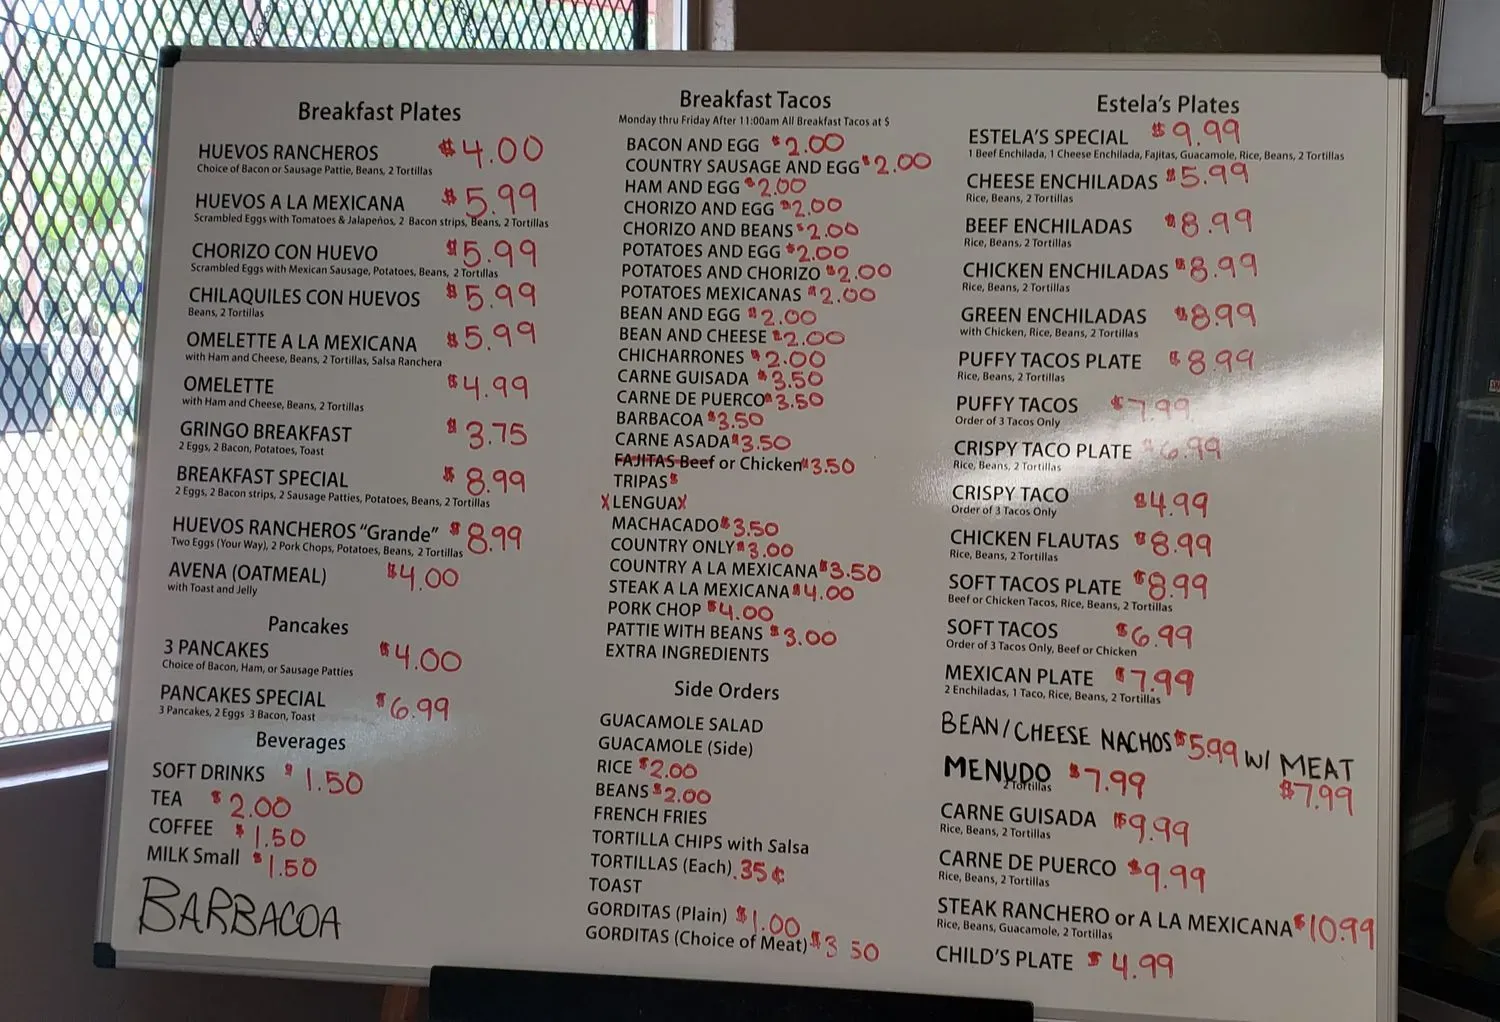 Breakfast Plates
HUEVOS RANCHEROS $4.00
Choice of Bacon or Sausage Pattie, Beans, 2 Tortillas
HUEVOS A LA MEXICANA $5.99
Scrambled Eggs with Tomatoes & Jalapeños, 2 Bacon strips, Beans, 2 Tortillas
CHORIZO CON HUEVO $5.99
Scrambled Eggs with Mexican Sausage, Potatoes, Beans, 2 Tortillas
CHILAQUILES CON HUEVOS $5.99
Beans, 2 Tortillas
OMELETTE A LA MEXICANA $5.99
with Ham and Cheese, Beans, 2 Tortillas, Salsa Ranchera
OMELETTE $4.99
with Ham and Cheese, Beans, 2 Tortillas
GRINGO BREAKFAST $3.75
2 Eggs, 2 Bacon, Potatoes, Toast
BREAKFAST SPECIAL $8.99
2 Eggs, 2 Bacon strips, 2 Sausage Patties, Potatoes, Beans, 2 Tortillas
HUEVOS RANCHEROS "Grande" $8.99
Two Eggs (Your Way), 2 Pork Chops, Potatoes, Beans, 2 Tortillas
AVENA (OATMEAL) $4.00
with Toast and Jelly
Pancakes
3 PANCAKES $4.00
Choice of Bacon, Ham, or Sausage Patties
PANCAKES SPECIAL $6.99
3 Pancakes, 2 Eggs 3 Bacon, Toast
Beverages
SOFT DRINKS $1.50
TEA $2.00
COFFEE $1.50
MILK Small $1.50
BARBACOA
Breakfast Tacos
Monday thru Friday After 11:00am All Breakfast Tacos at $
BACON AND EGG $2.00
COUNTRY SAUSAGE AND EGG $2.00
HAM AND EGG $2.00
CHORIZO AND EGG $2.00
CHORIZO AND BEANS $2.00
POTATOES AND EGG $2.00
POTATOES AND CHORIZO $2.00
POTATOES MEXICANAS $2.00
BEAN AND EGG $2.00
BEAN AND CHEESE $2.00
CHICHARRONES $2.00
CARNE GUISADA $3.50
CARNE DE PUERCO $3.50
BARBACOA $3.50
CARNE ASADA $3.50
FAJITAS Beef or Chicken $3.50
TRIPAS $
X LENGUA X
MACHACADO $3.50
COUNTRY ONLY $3.00
COUNTRY A LA MEXICANA $3.50
STEAK A LA MEXICANA $4.00
PORK CHOP $4.00
PATTIE WITH BEANS $3.00
EXTRA INGREDIENTS
Side Orders
GUACAMOLE SALAD
GUACAMOLE (Side)
RICE $2.00
BEANS $2.00
FRENCH FRIES
TORTILLA CHIPS with Salsa
TORTILLAS (Each) .35¢
TOAST
GORDITAS (Plain) $1.00
GORDITAS (Choice of Meat) $3 50
Estela's Plates
ESTELA'S SPECIAL $9.99
1 Beef Enchilada, 1 Cheese Enchilada, Fajitas, Guacamole, Rice, Beans, 2 Tortillas
CHEESE ENCHILADAS $5.99
Rice, Beans, 2 Tortillas
BEEF ENCHILADAS $8.99
Rice, Beans, 2 Tortillas
CHICKEN ENCHILADAS $8.99
Rice, Beans, 2 Tortillas
GREEN ENCHILADAS $8.99
with Chicken, Rice, Beans, 2 Tortillas
PUFFY TACOS PLATE $8.99
Rice, Beans, 2 Tortillas
PUFFY TACOS $7.99
Order of 3 Tacos Only
CRISPY TACO PLATE $6.99
Rice, Beans, 2 Tortillas
CRISPY TACO $4.99
Order of 3 Tacos Only
CHICKEN FLAUTAS $8.99
Rice, Beans, 2 Tortillas
SOFT TACOS PLATE $8.99
Beef or Chicken Tacos, Rice, Beans, 2 Tortillas
SOFT TACOS $6.99
Order of 3 Tacos Only, Beef or Chicken
MEXICAN PLATE $7.99
2 Enchiladas, 1 Taco, Rice, Beans, 2 Tortillas
BEAN/CHEESE NACHOS $5.99 W/ MEAT
$7.99
MENUDO $7.99
2 Tortillas
CARNE GUISADA $9.99
Rice, Beans, 2 Tortillas
CARNE DE PUERCO $9.99
Rice, Beans, 2 Tortillas
STEAK RANCHERO or A LA MEXICANA $10.99
Rice, Beans, Guacamole, 2 Tortillas
CHILD'S PLATE $4.99